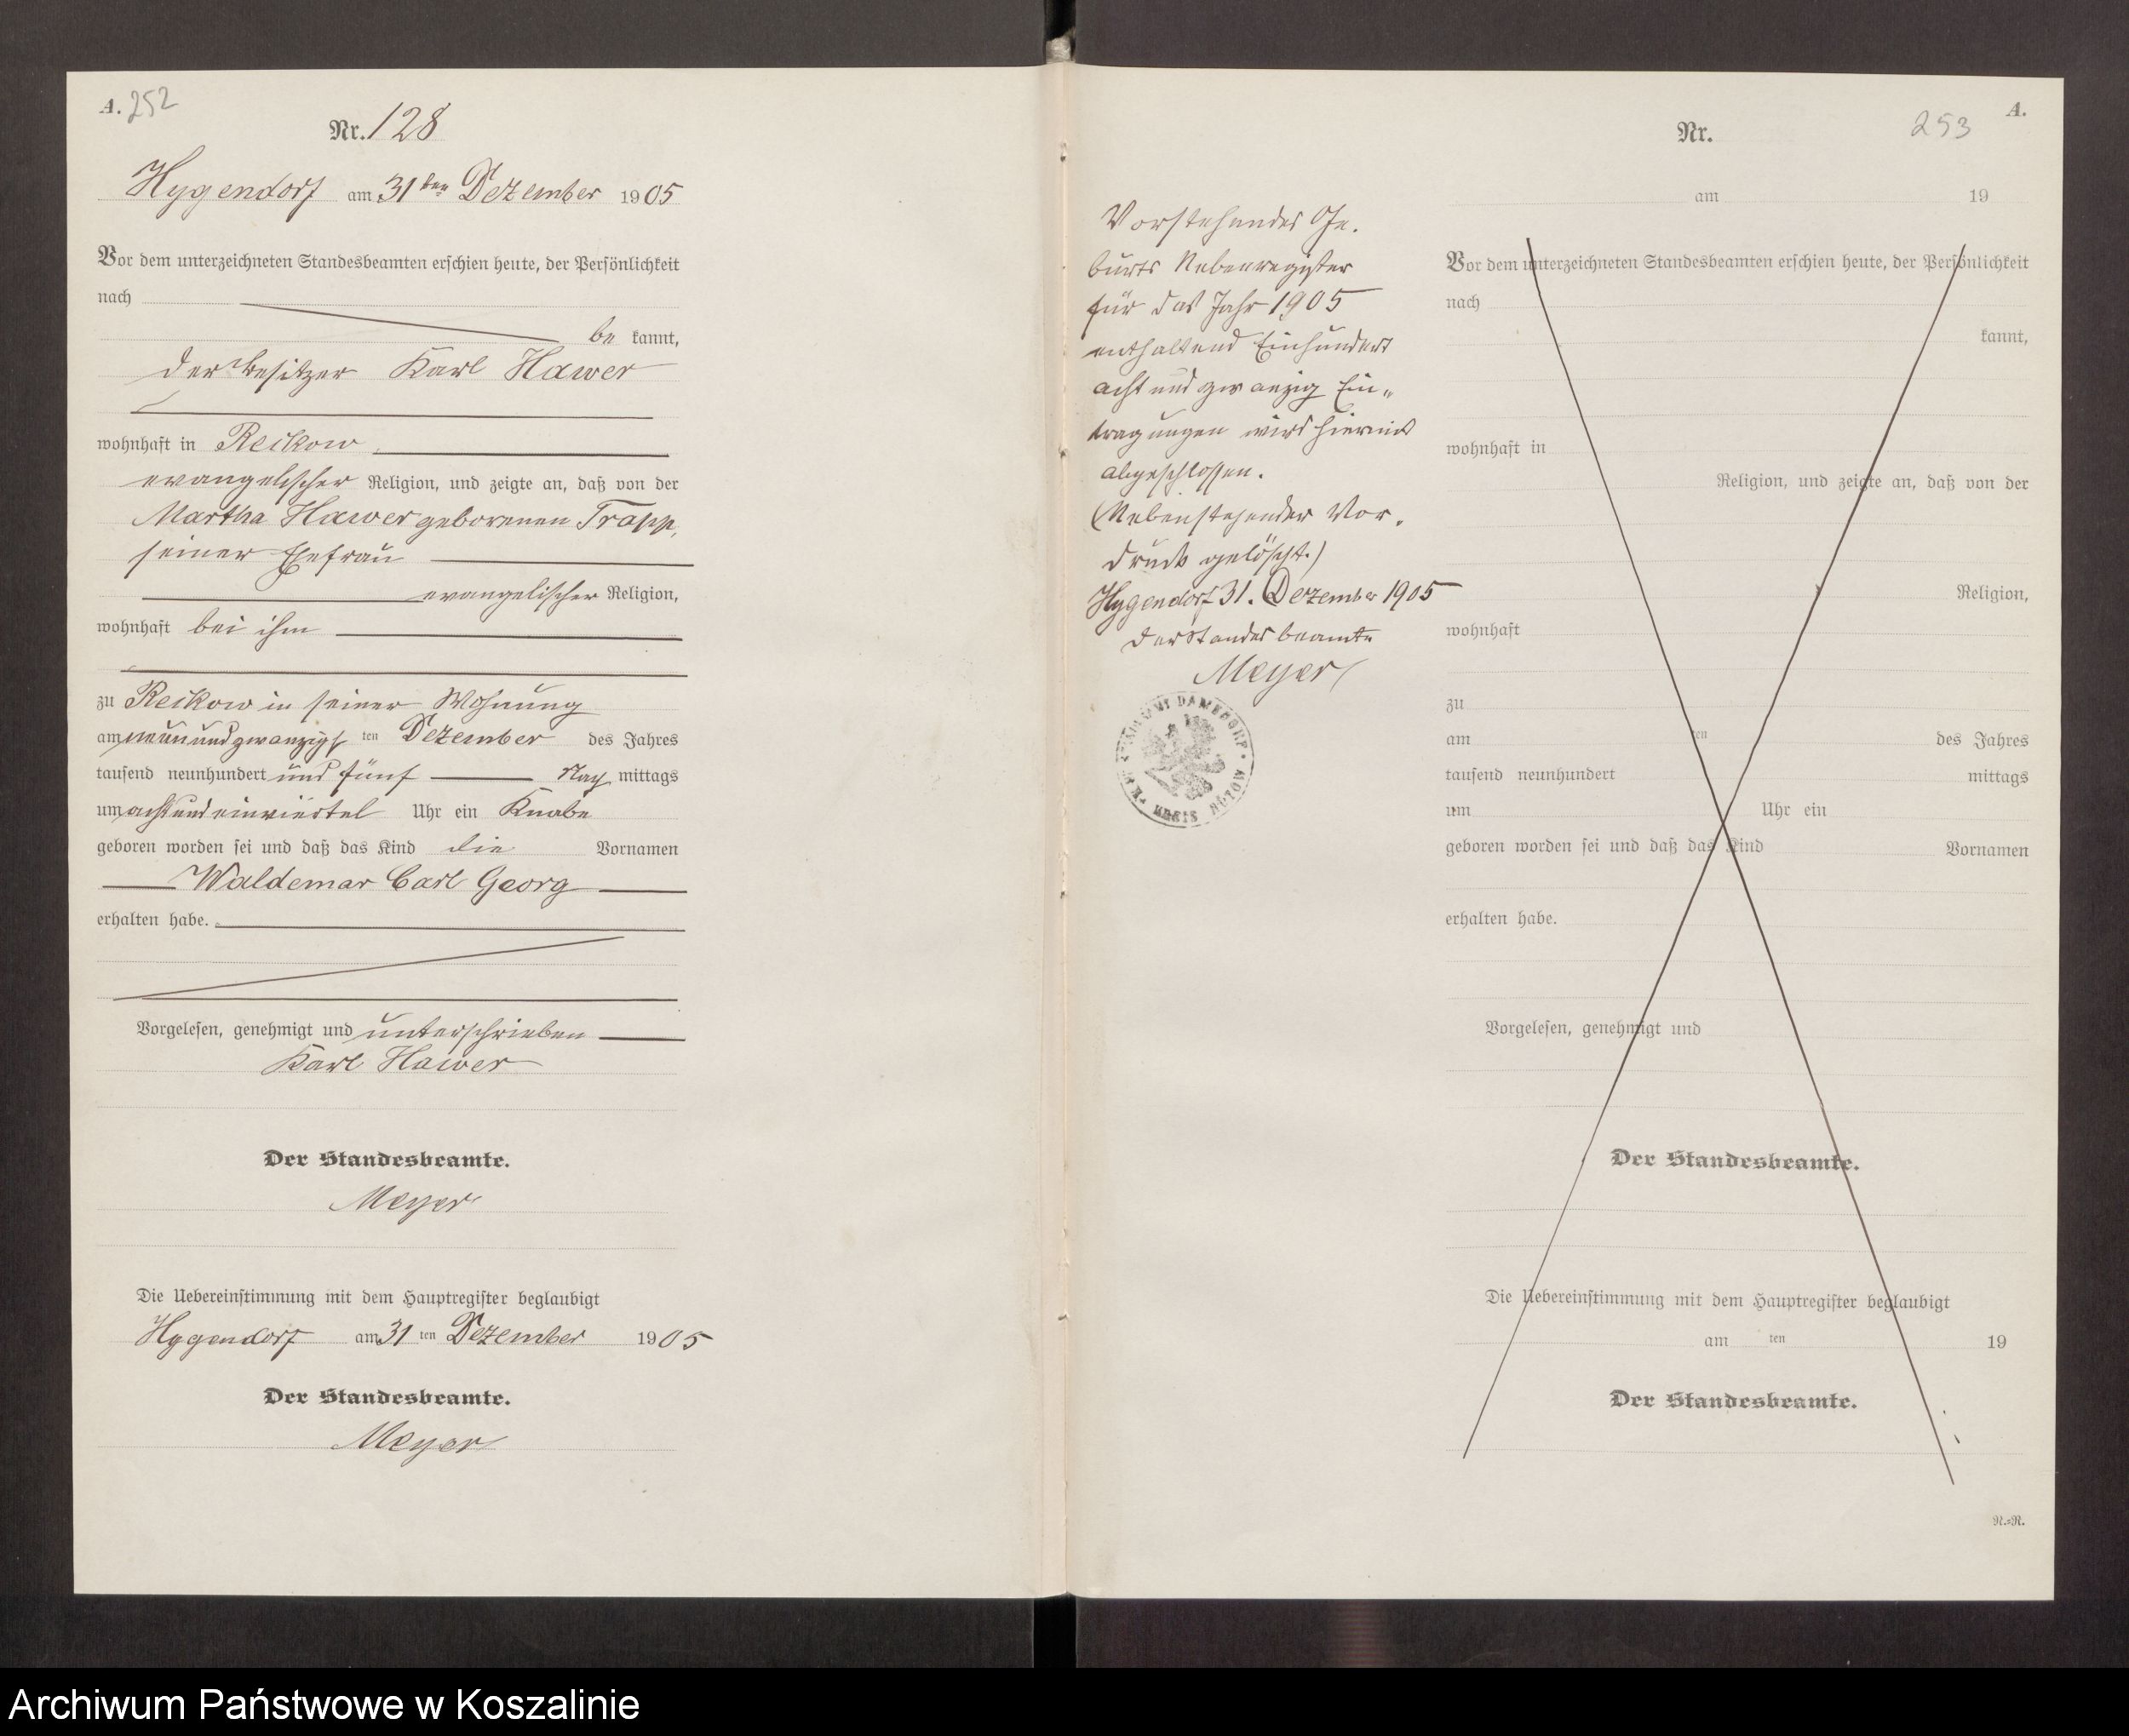 A. 252
Nr. 128
Hygendorf am 31ten Dezember 1905
Vor dem unterzeichneten Standesbeamten erschien heute, der Persönlichkeit
nach
be kannt,
der Besitzer Karl Hawer
wohnhaft in Reikow,
evangelischer Religion, und zeigte an, daß von der
Martha Hawer geborenen Trapp,
seiner Ehefrau
evangelischer Religion,
wohnhaft bei ihm
zu Reikow in seiner Wohnung
am neunundzwanzigsten Dezember des Jahres
tausend neunhundert und fünf Nach mittags
um acht und einviertel Uhr ein Knabe
geboren worden sei und daß das Kind die Vornamen
Waldemar Carl Georg
erhalten habe.
Vorgelesen, genehmigt und unterschrieben
Karl Hawer
Der Standesbeamte.
Meyer
Die Uebereinstimmung mit dem Hauptregister beglaubigt
Hygendorf am 31 ten Dezember 1905
Der Standesbeamte.
Meyer
Vorstehendes Ge-
burts Nebenregister
für das Jahr 1905
enthaltend Einhundert
achtundzwanzig Ein-
tragungen wird hiermit
abgeschlossen.
(Nebenstehender Vor-
druck gelöscht.)
Hygendorf 31. Dezember 1905
Der Standesbeamte
Meyer
DAMERDORF * KREIS BÜTOW
A.
253
Nr.
am 19
Vor dem unterzeichneten Standesbeamten erschien heute, der Persönlichkeit
nach
kannt,
wohnhaft in
Religion, und zeigte an, daß von der
Religion,
wohnhaft
zu
am ten des Jahres
tausend neunhundert mittags
um Uhr ein
geboren worden sei und daß das Kind Vornamen
erhalten habe.
Vorgelesen, genehmigt und
Der Standesbeamte.
Die Uebereinstimmung mit dem Hauptregister beglaubigt
am ten 19
Der Standesbeamte.
N.=R.
Archiwum Państwowe w Koszalinie